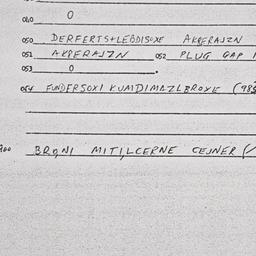 040 0
050 DERFERTS+LEBDISOXE AKRERAJZN
051 AKRERAJZN 052 PLUG GAP
053 0
054 FUNDERSOXI KUMDIMAZLBROXE (985
BRONI MITILCERNE CEJNER